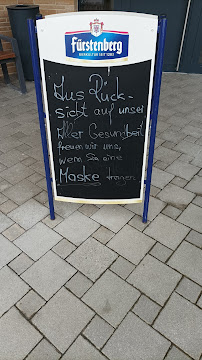 Fürstenberg
Aus Rück-
sicht auf unser
Aller Gesundheit
freuen wir uns,
wenn Sie eine
Maske tragen